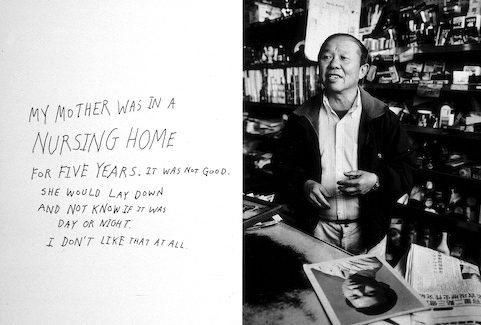 MY MOTHER WAS IN A
NURSING HOME
FOR FIVE YEARS. IT WAS NOT GOOD.
SHE WOULD LAY DOWN
AND NOT KNOW IF IT WAS
DAY OR NIGHT.
I DON'T LIKE THAT AT ALL.